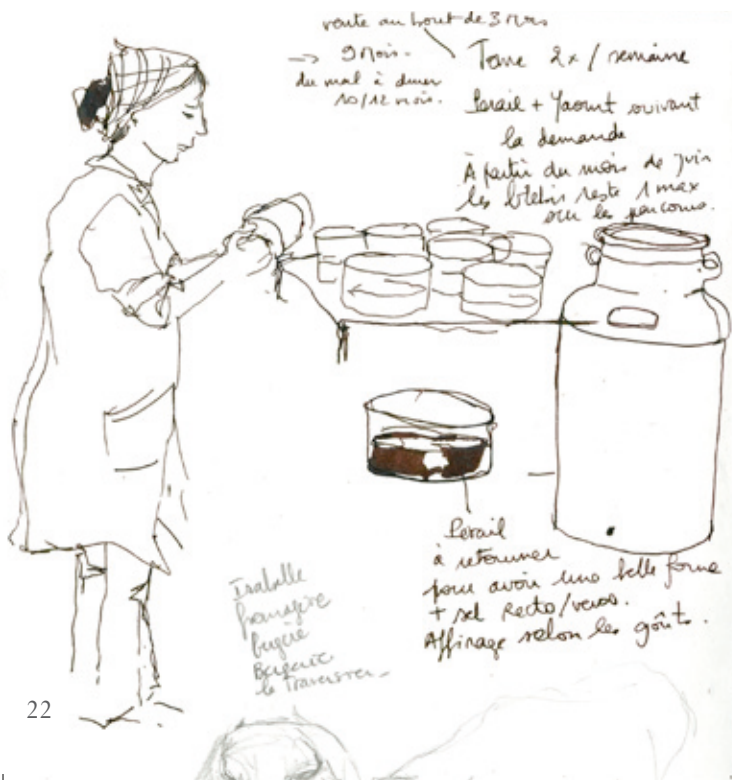 vente au bout de 3 mois
→ 9 mois.
du mal à durer
10/12 mois.
Tome 2x / semaine
Perail + Yaourt suivant
la demande
À partir du mois de juin
les brebis reste 1 max
sur les parcours.
Perail
à retourner
pour avoir une belle forme
+ sel Recto/verso.
Affinage selon les goûts.
Isabelle
fromagère
bergère
22